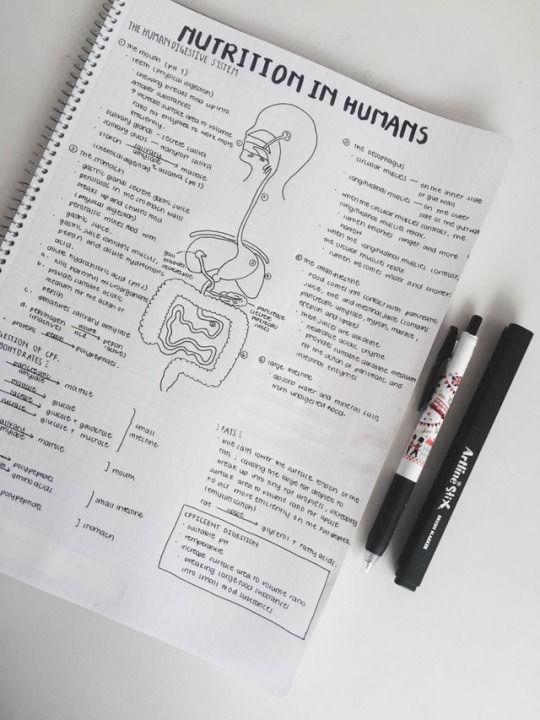 NUTRITION IN HUMANS
THE HUMAN DIGESTIVE SYSTEM
① the mouth (pH 7)
· teeth (physical digestion)
· chewing breaks food up into
smaller substances
→ increase surface area to volume
ratio for enzymes to work more
efficiently.
· salivary glands - secrete saliva
· salivary ducts — transport saliva
· starch salivary amylase maltose
(chemical digestion)
③ the stomach
· gastric glands secrete gastric juice
· peristalsis in the stomach walls
breaks up and churns food
(physical digestion)
· peristalsis mixes food with
gastric juice.
· gastric juice contains mucus,
pepsin and dilute hydrochloric
acid.
· dilute hydrochloric acid (pH 2)
a. kills harmful microorganisms
b. provides suitable acidic
medium for the action of
pepsin
c. denatures salivary amylase
d. pepsinogen pepsin
(inactive) HCl (active)
· proteins pepsin polypeptides.
② the oesophagus
· circular muscles — on the inner side
of gut wall
· longitudinal muscles — on the outer
side of the gut wall
· when the circular muscles contract, the
longitudinal muscles relax.
lumen becomes longer and more
narrow
· when the longitudinal muscles contract,
the circular muscles relax
lumen becomes wider and shorter
④ the small intestine
· food comes into contact with pancreatic
juice, bile and intestinal juice (contain
pancreatic amylase, trypsin, maltase,
pepsin and lipase)
· these juices are alkaline
· neutralise acidic chyme
· provides suitable medium
for the action of pancreatic and
intestinal enzymes
gall bladder
pancreas
secretes
pancreatic
juices
⑤ large intestine
· absorb water and mineral salts
from undigested food.
DIGESTION OF CPF.
CARBOHYDRATES
pancreatic amylase maltose
maltase glucose
lactase glucose + galactose
sucrase glucose + fructose
salivary amylase maltose
small
intestine
] mouth
polypeptides
amino acids
] small intestine
polypeptides
] stomach
FATS
· bile salts lower the surface tension of the
fats, causing the large fat droplets to
break up into tiny fat droplets, increasing
surface area to volume ratio for lipase
to act more efficiently on the fat droplets.
(emulsification)
· fat lipase glycerol + fatty acids.
EFFICIENT DIGESTION
· suitable pH
· temperature
· increase surface area to volume ratio
· breaking large food substances
into small food substances
Artline Stix
BRUSH MARKER